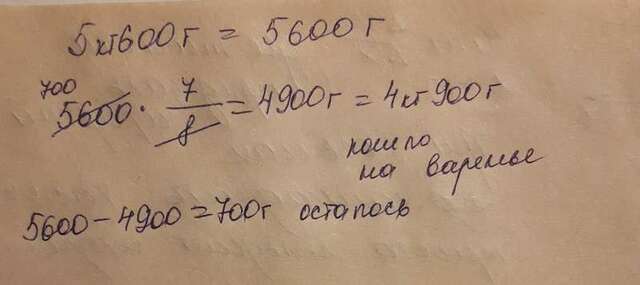 5кг600г = 5600г
700
5600 · 7/8 = 4900г = 4кг900г
пошло
на варенье
5600 - 4900 = 700г осталось